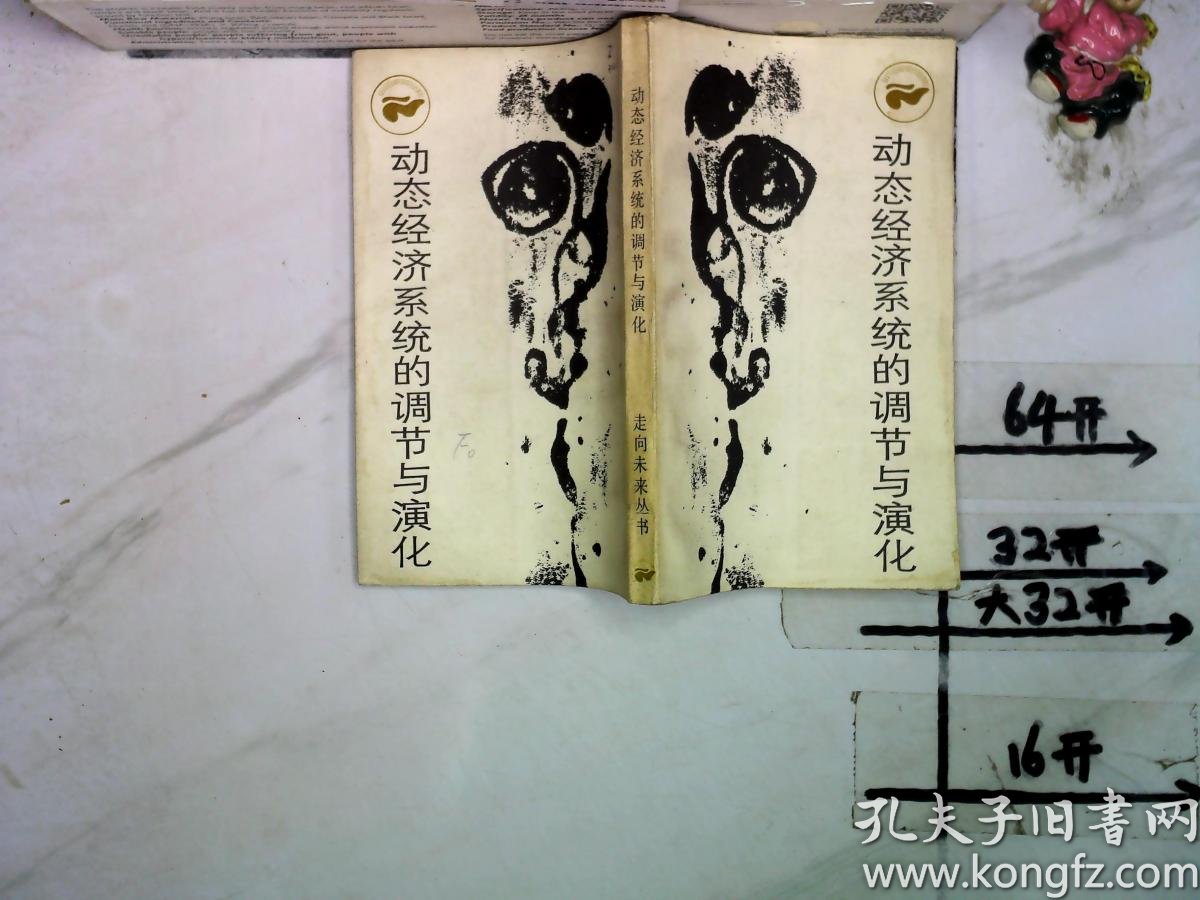 动态经济系统的调节与演化
动态经济系统的调节与演化
走向未来丛书
动态经济系统的调节与演化
64开
32开
大32开
16开
孔夫子旧书网
www.kongfz.com